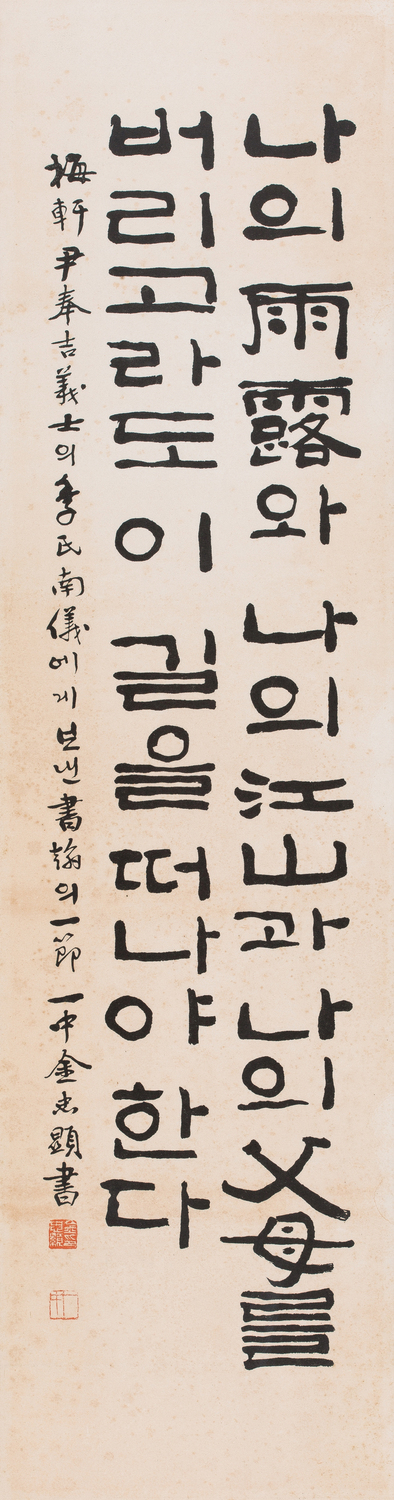 나의 雨露와 나의 江山과 나의 父母를
버리고라도 이 길을 떠나야 한다
梅軒 尹奉吉義士의 季氏 南儀에게 보낸 書翰의 一節 一中 金忠顯 書